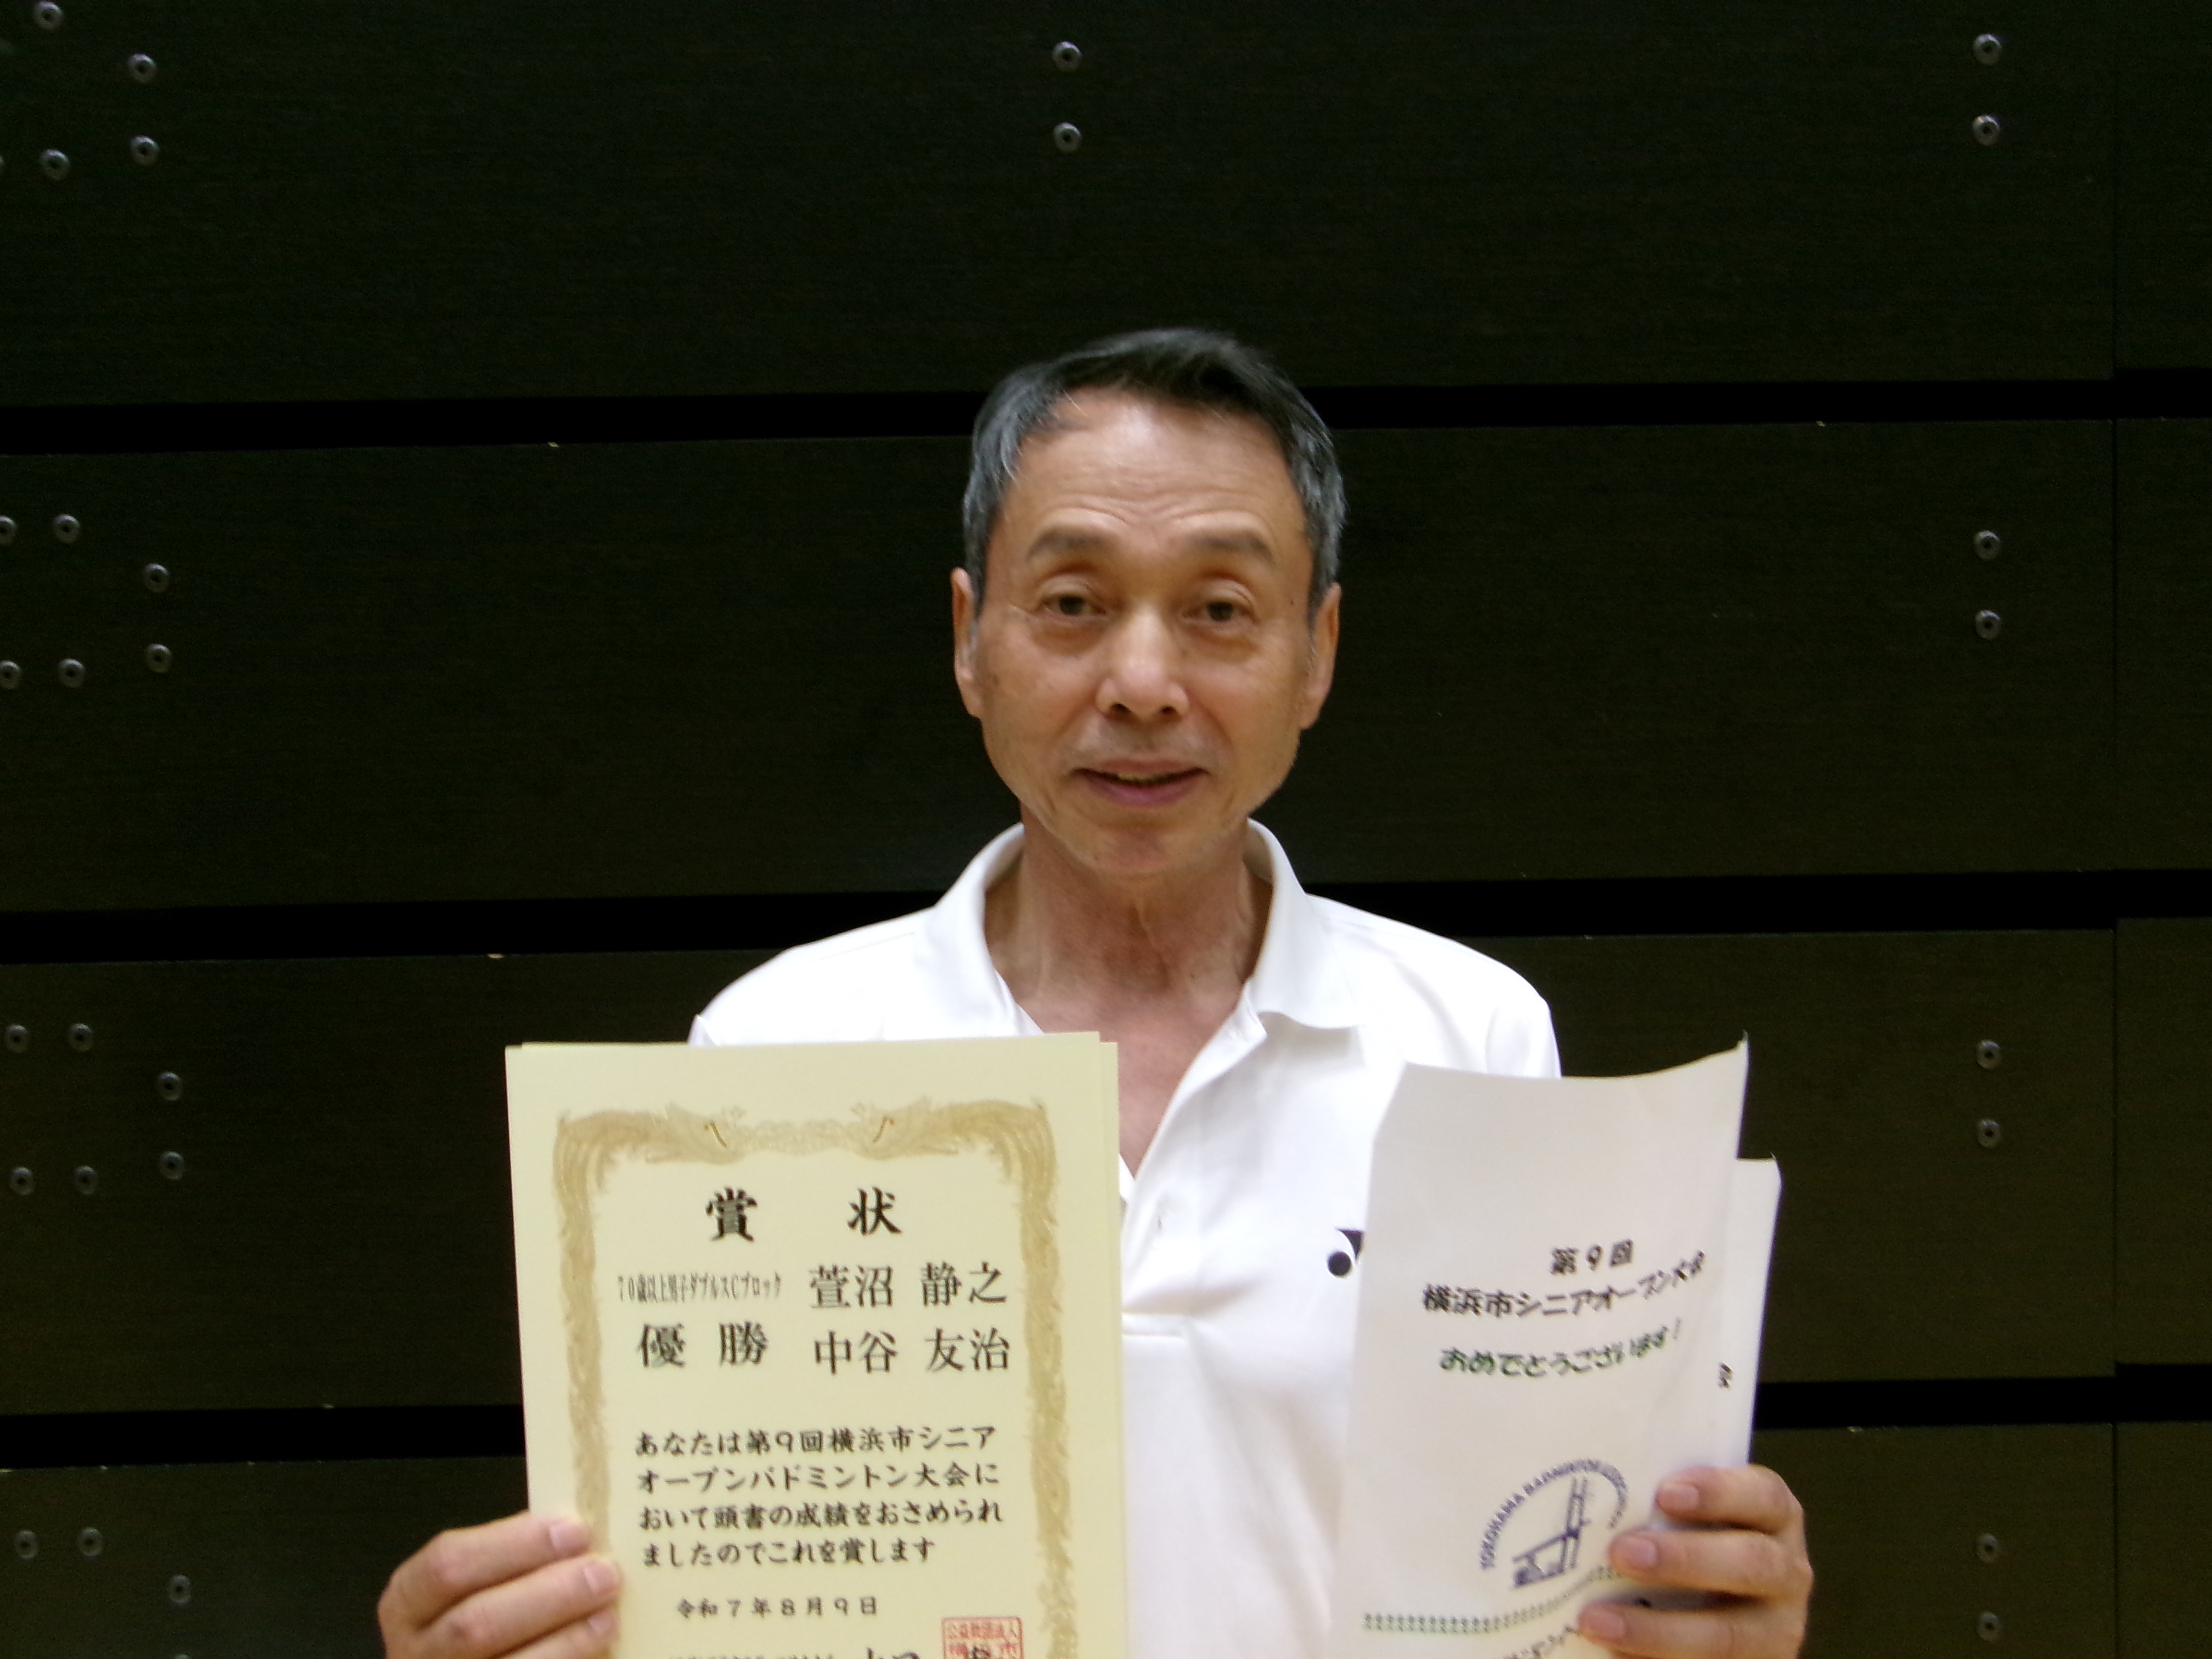 賞 状
70歳以上男子ダブルスCブロック 萱沼 静之
優 勝 中谷 友治
あなたは第9回横浜市シニア
オープンバドミントン大会に
おいて頭書の成績をおさめられ
ましたのでこれを賞します
令和7年8月9日
公益社団法人
第9回
横浜市シニアオープン大会
おめでとうございます!
YOKOHAMA BADMINTON